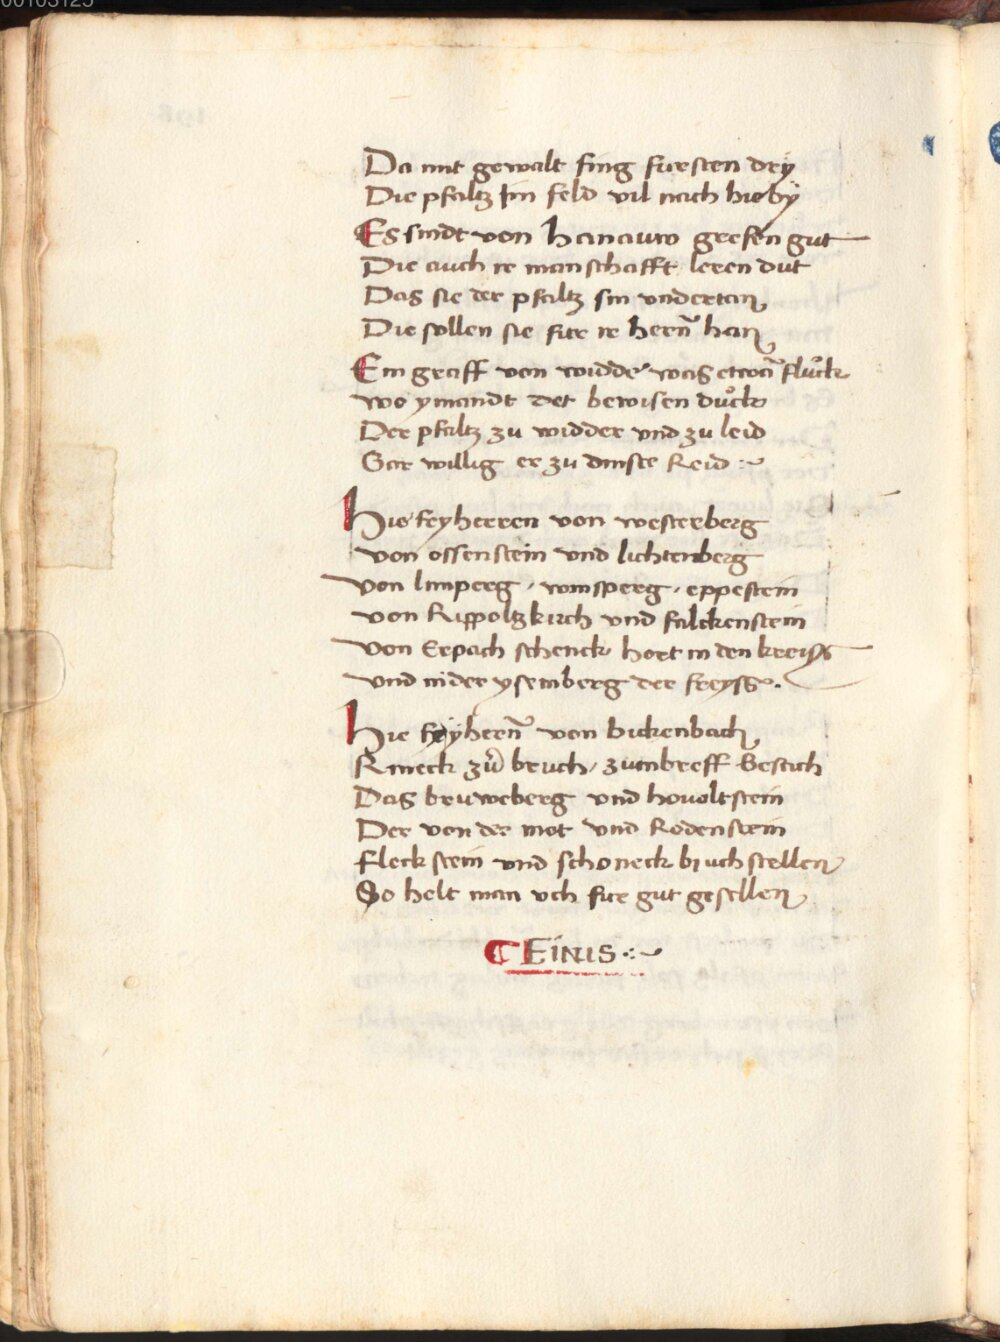 00103125
Da mit gewalt fing fursten dry
Die pfaltz Im feld vil nach hieby
Es sindt von hanauw grefen gut
Die auch ir manschafft leren dut
Das sie der pfaltz sin vndertan
Die sollen sie fur ir hern̄ han
Ein graff von widde was etwā fluck
wo ymandt det bewisen duck
Der pfaltz zu widder vnd zu leid
Gar willig er zu dinste Reid
Hie feyherren von westerberg
von ossenstein vnd lichtenberg
von limperg, winsperg, eppestein
von Ruppoltzkirch vnd falckenstein
von Erpach schenck hort in den kreiß
vnd nider ysemberg der freyß.
Hie fryhern̄ von bickenbach
Rineck zu bruch, zum breff Gestich
Das bruweberg vnd hovoltstein
Der von der mot vnd Rodenstein
Fleckstein vnd schoneck bruchstellen
So helt man vch fur gut gesellen
FINIS